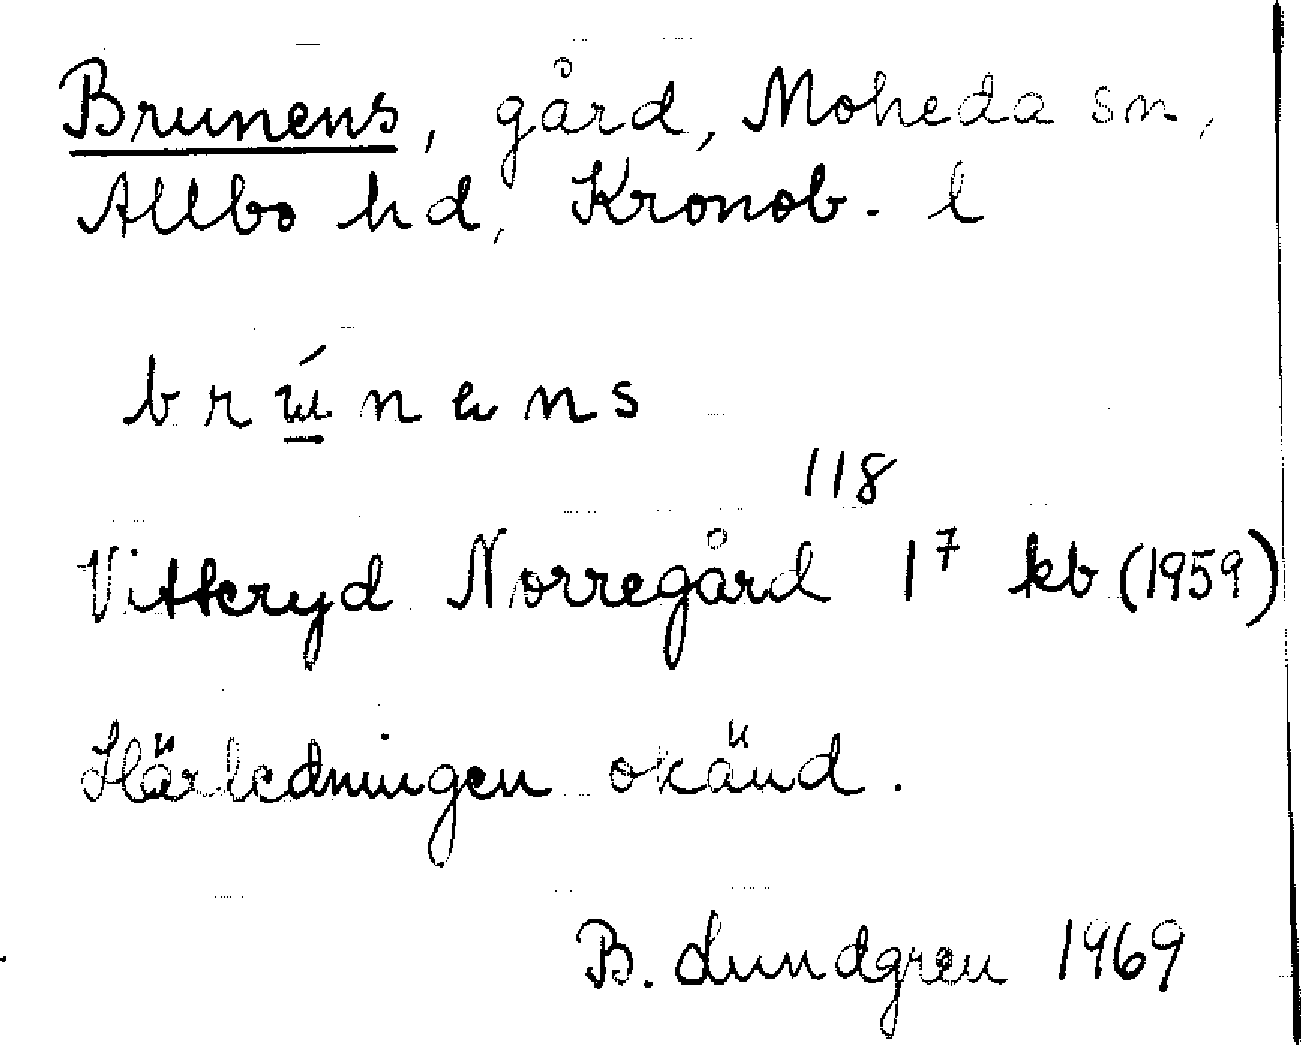 Brunens, gård, Moheda sn,
Allbo hd, Kronob. l
brúnens
118
Vitteryd Norregård 1⁷ kb (1959)
Härledningen okänd.
B. Lundgren 1969